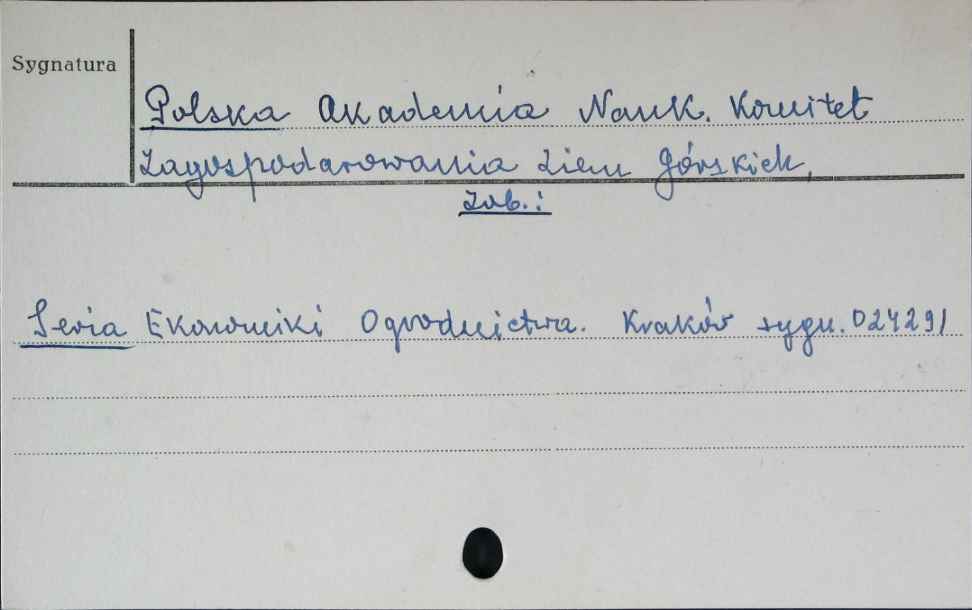 Sygnatura
Polska Akademia Nauk. Komitet
Zagospodarowania Ziem Górskich,
Zob.:
Seria Ekonomiki Ogrodnictwa. Kraków sygn. 024291